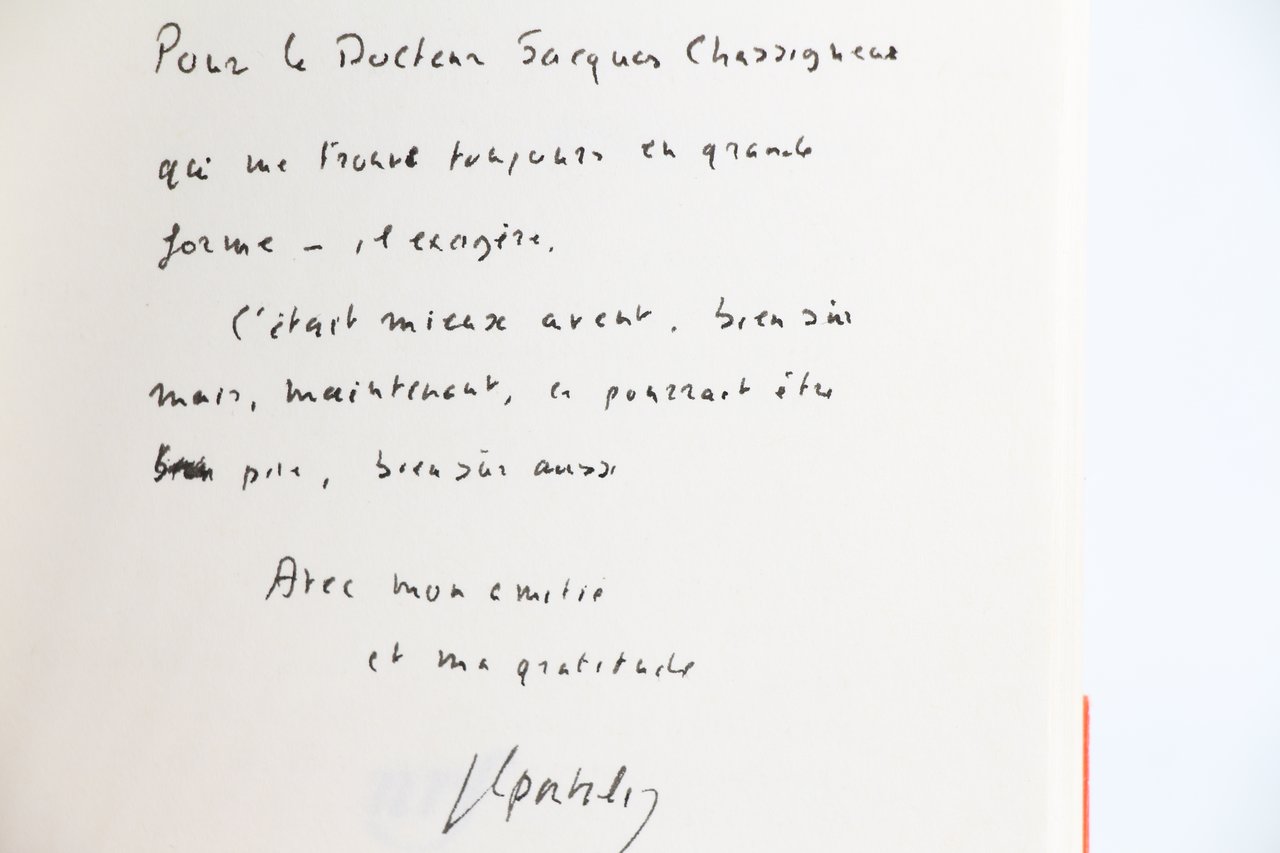 Pour le Docteur Jacques Chassigneux
qui me trouve toujours en grande
forme – il exagère.
C'était mieux avant, bien sûr
mais, maintenant, ça pourrait être
pire, bien sûr aussi
Avec mon amitié
et ma gratitude